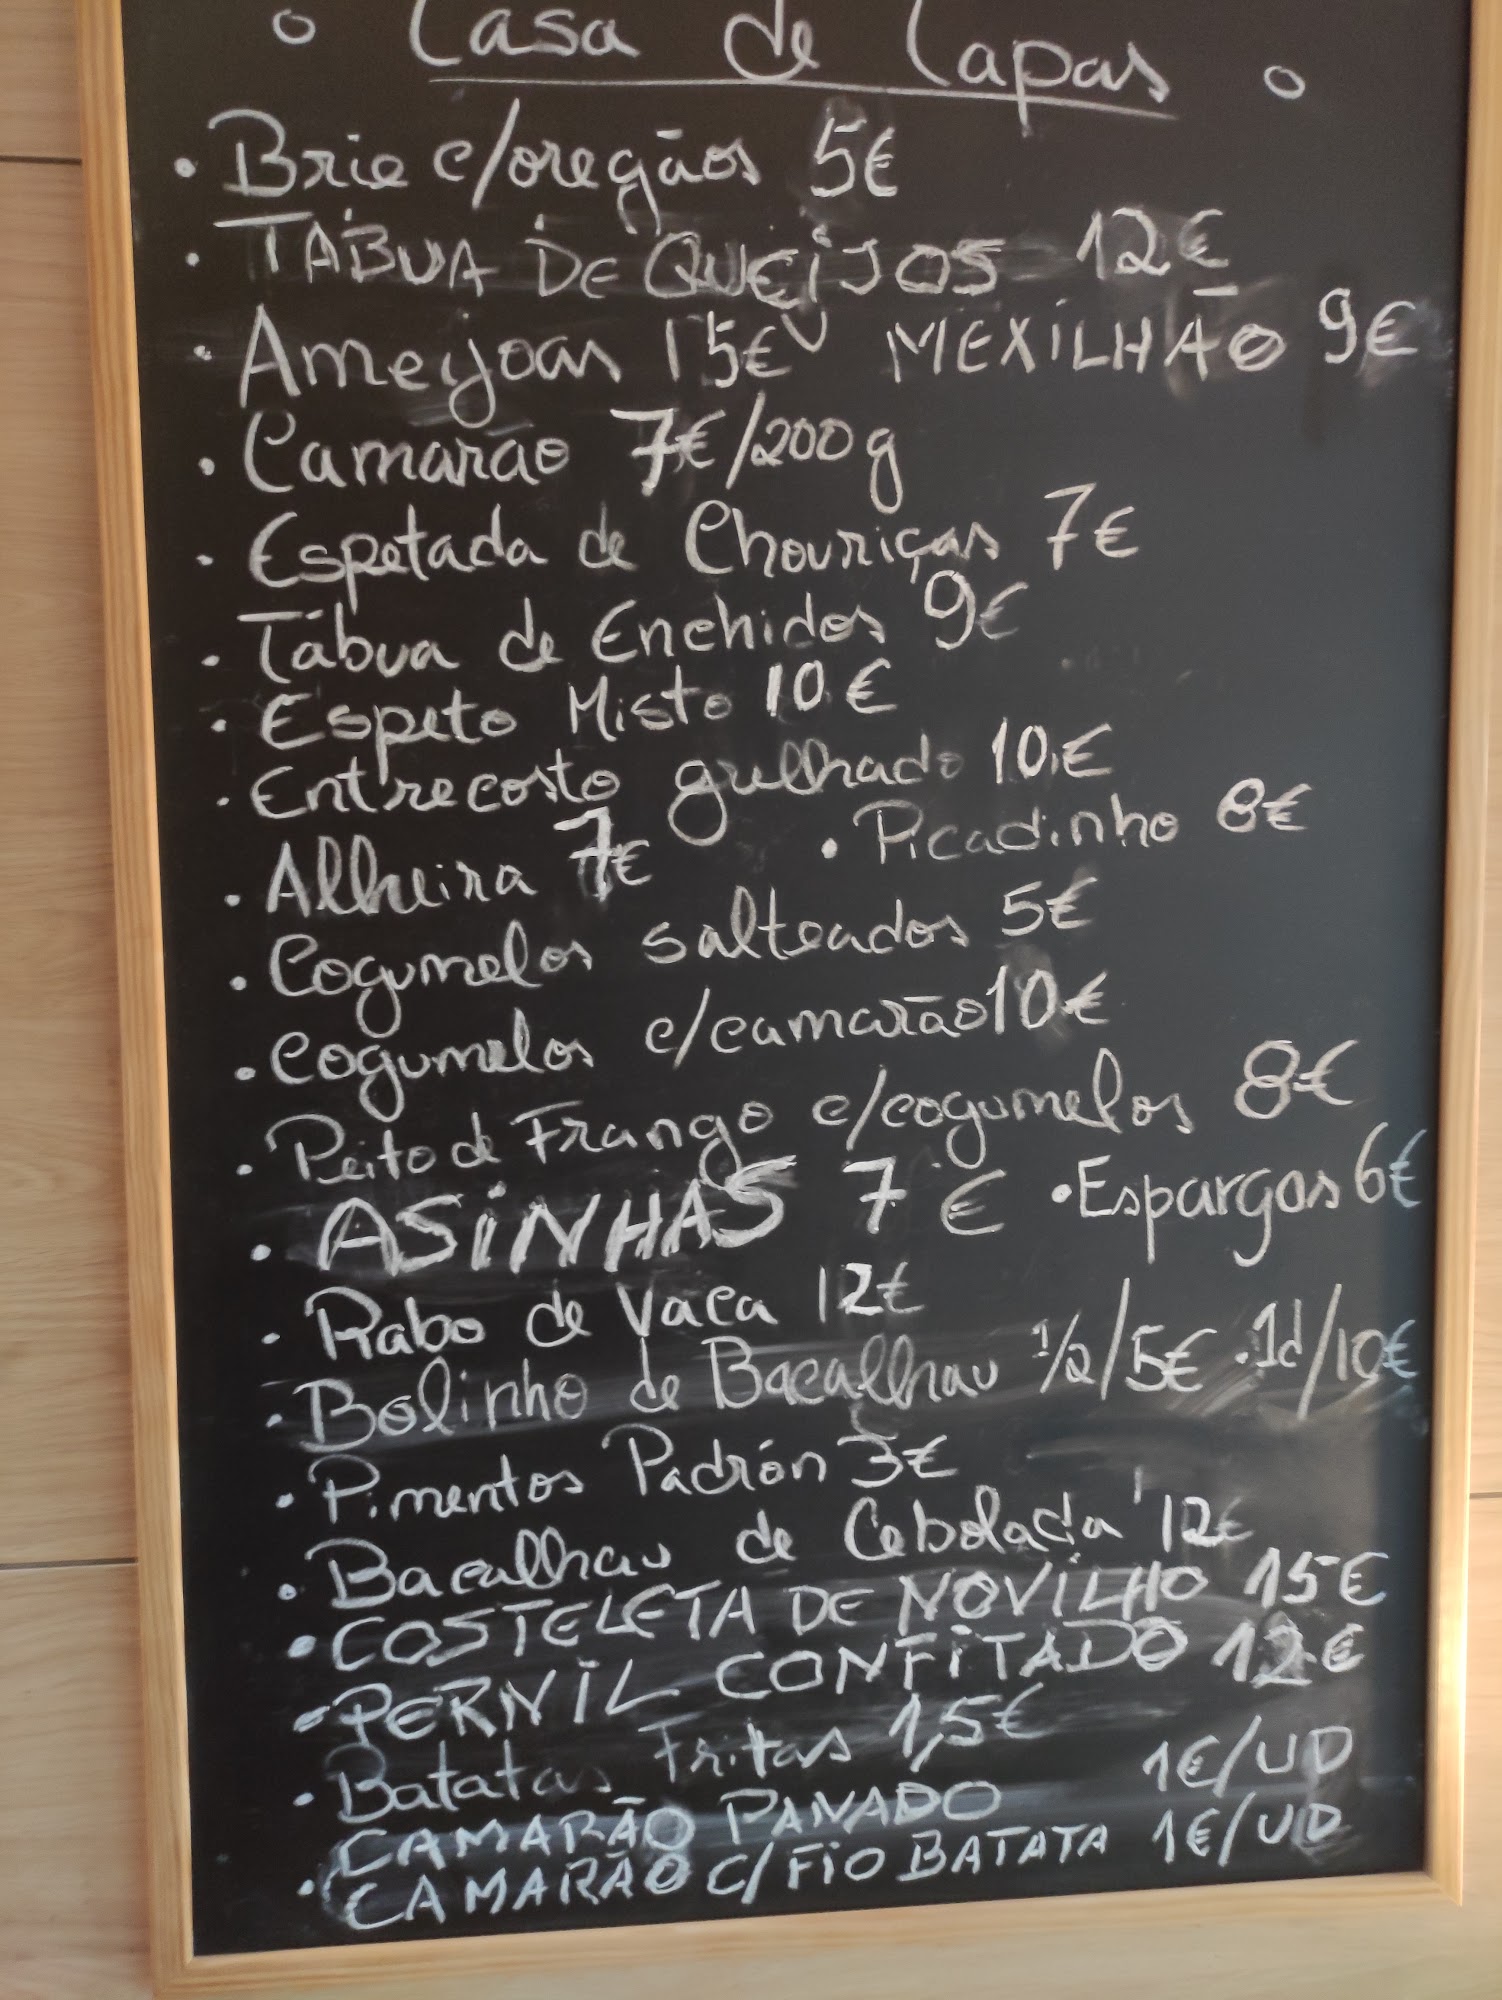 ° Casa de Tapas °
• Brie c/oregãos 5€
• TÁBUA DE QUEIJOS 12€
• Ameijoas 15€ MEXILHÃO 9€
• Camarão 7€/200g
• Espetada de Chouriças 7€
• Tábua de Enchidos 9€
• Espeto Misto 10€
• Entrecosto grelhado 10€
• Alheira 7€ • Picadinho 8€
• Cogumelos salteados 5€
• Cogumelos c/camarão 10€
• Peito de Frango c/cogumelos 8€
• ASINHAS 7€ • Espargos 6€
• Rabo de Vaca 12€
• Bolinho de Bacalhau 1/2/5€ . 1d/10€
• Pimentos Padrón 3€
• Bacalhau de Cebolada 12€
• COSTELETA DE NOVILHO 15€
• PERNIL CONFITADO 12€
• Batatas Fritas 1,5€
CAMARÃO PANADO 1€/UD
• CAMARÃO C/FIO BATATA 1€/UD